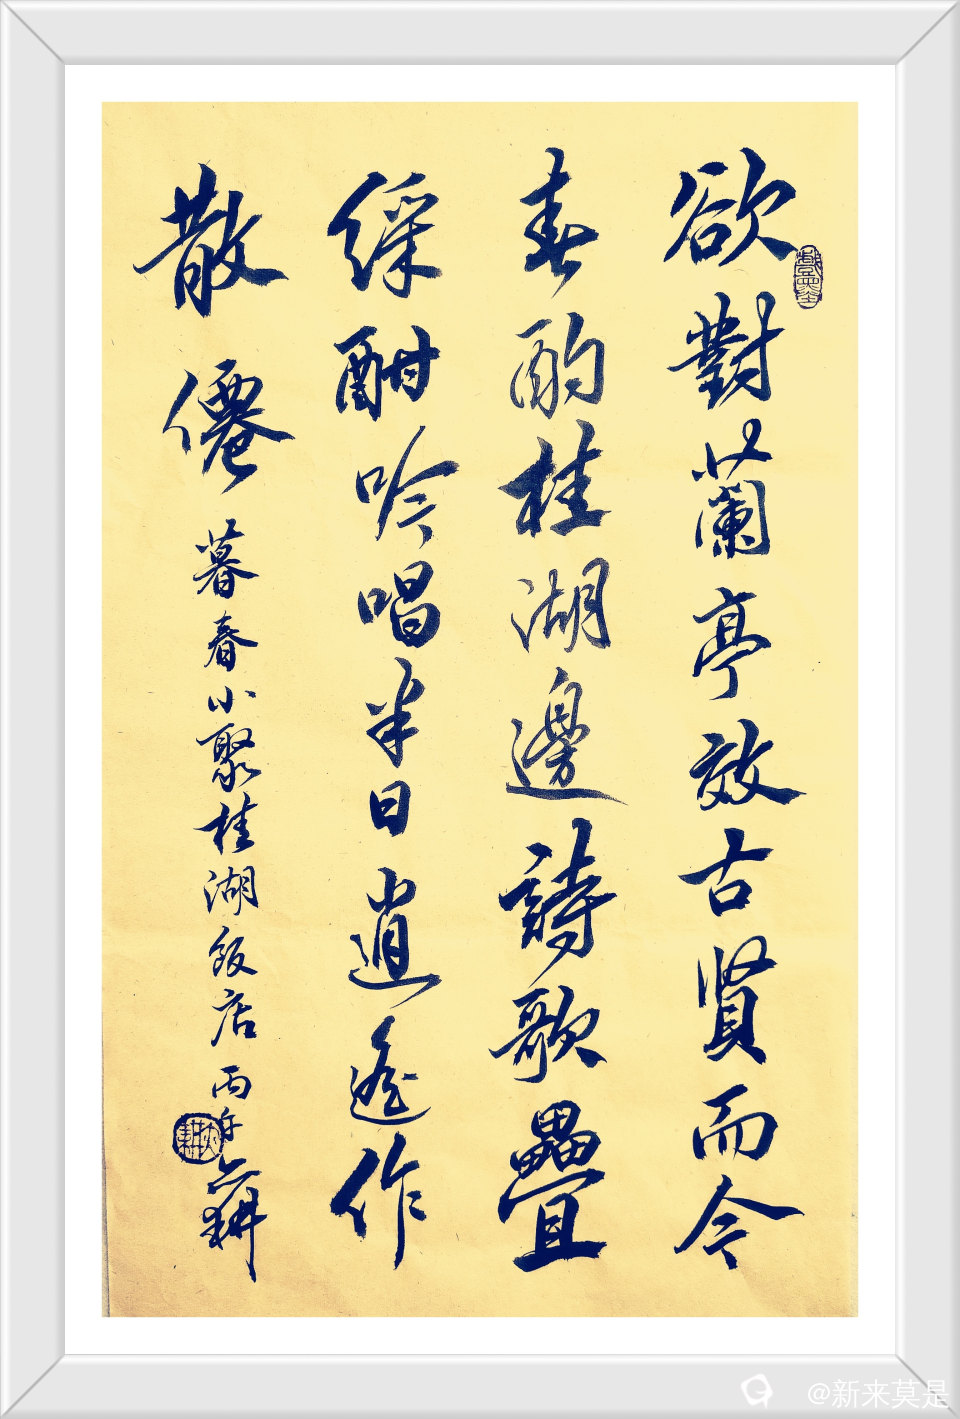 欲對蘭亭效古賢而今
春酌桂湖邊詩歌疊
綵酣吟唱半日逍遙作
散僊
暮春小聚桂湖飯店丙午
耕
@新来莫是